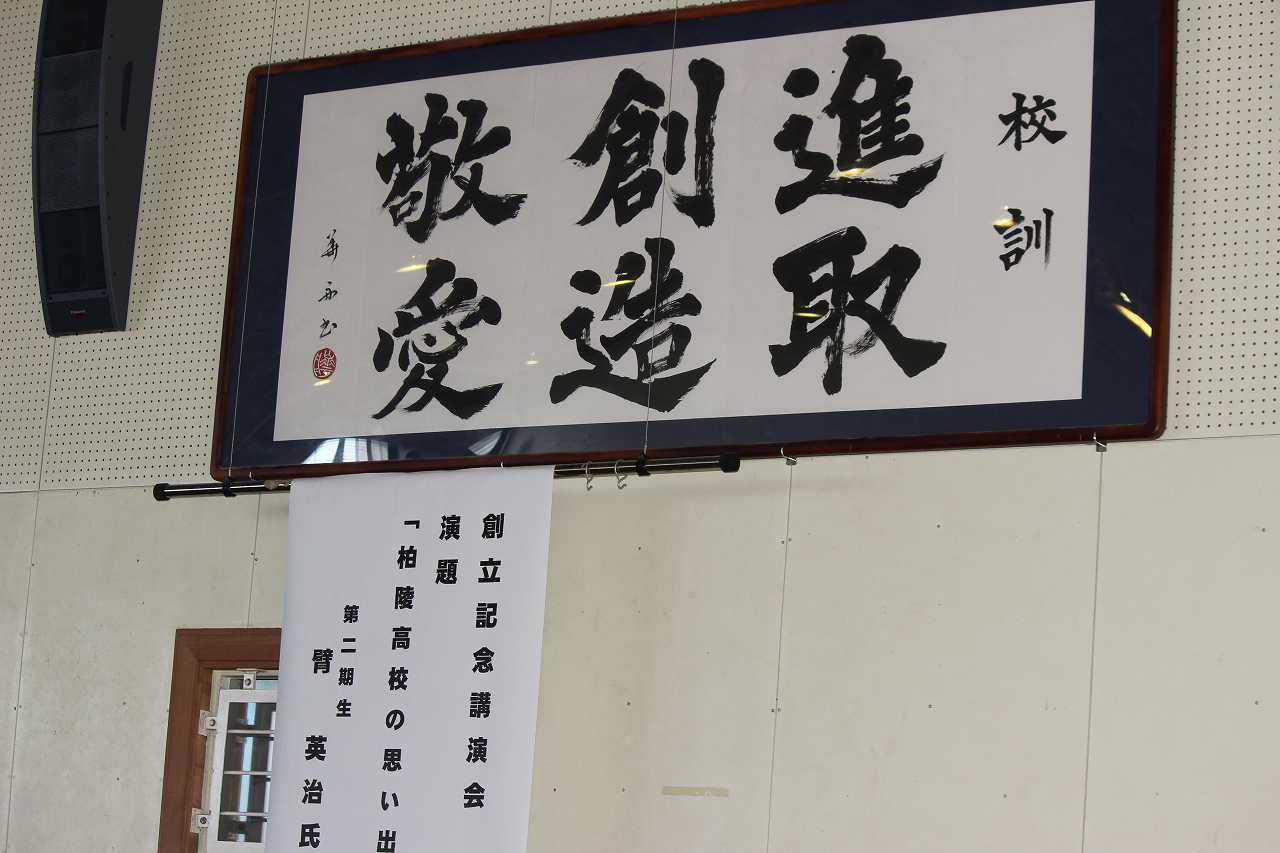 校訓
進取
創造
敬愛
華永書
創立記念講演会
演題
「柏陵高校の思い出
第二期生
臂 英治氏